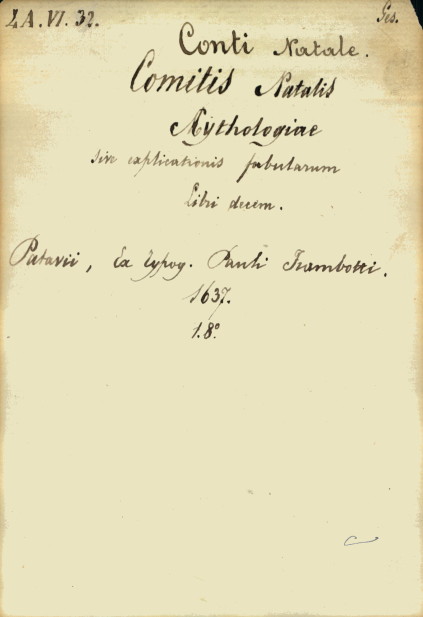 LA.VI.32. Ges.
Conti Natale.
Comitis Natalis
Mythologiae
sive explicationis fabularum
Libri decem.
Patavii, Ex typog. Pauli Frambotti.
1637.
1.8º